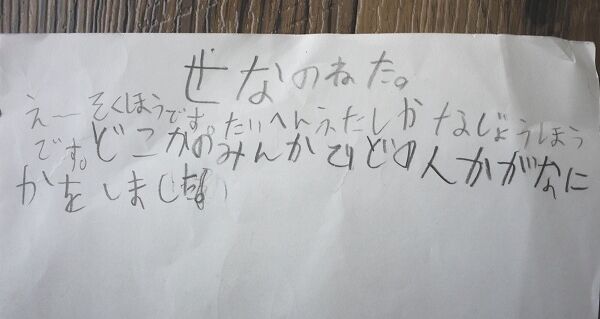 ぜなのねた。
えーそくほうです。たいへんふたしかなじょうほう
です。どこかのみんかでどの人かがなに
かをしました